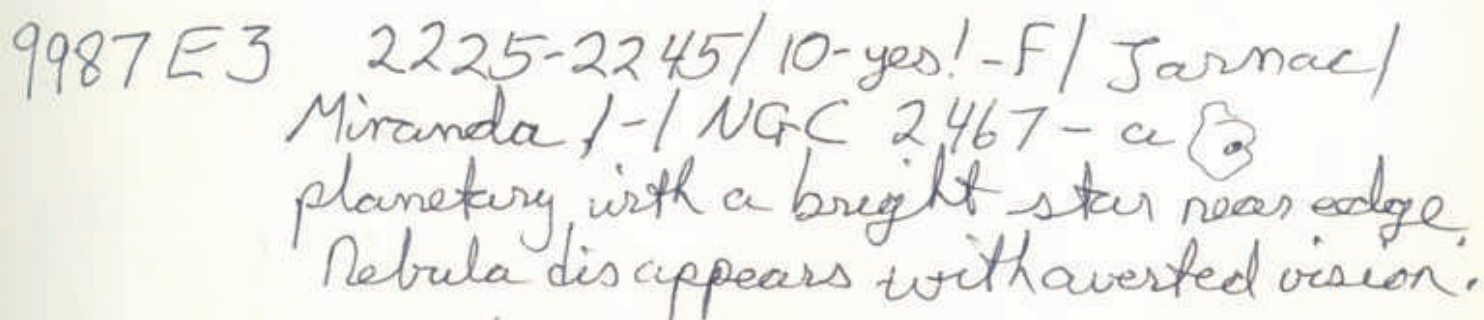 9987 E3 2225-2245/ 10-yes!-F/ Jarnac/
Miranda /-/ NGC 2467 - a
planetary with a bright star near edge.
Nebula disappears with averted vision.